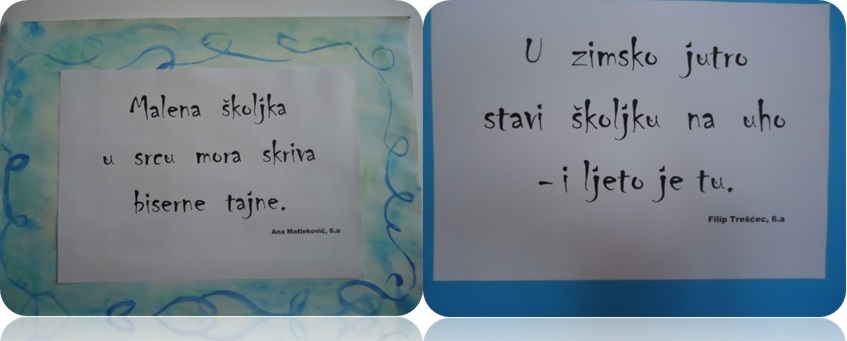 Malena školjka
u srcu mora skriva
biserne tajne.
Ana Matleković, 6.a
U zimsko jutro
stavi školjku na uho
- i ljeto je tu.
Filip Treščec, 6.a